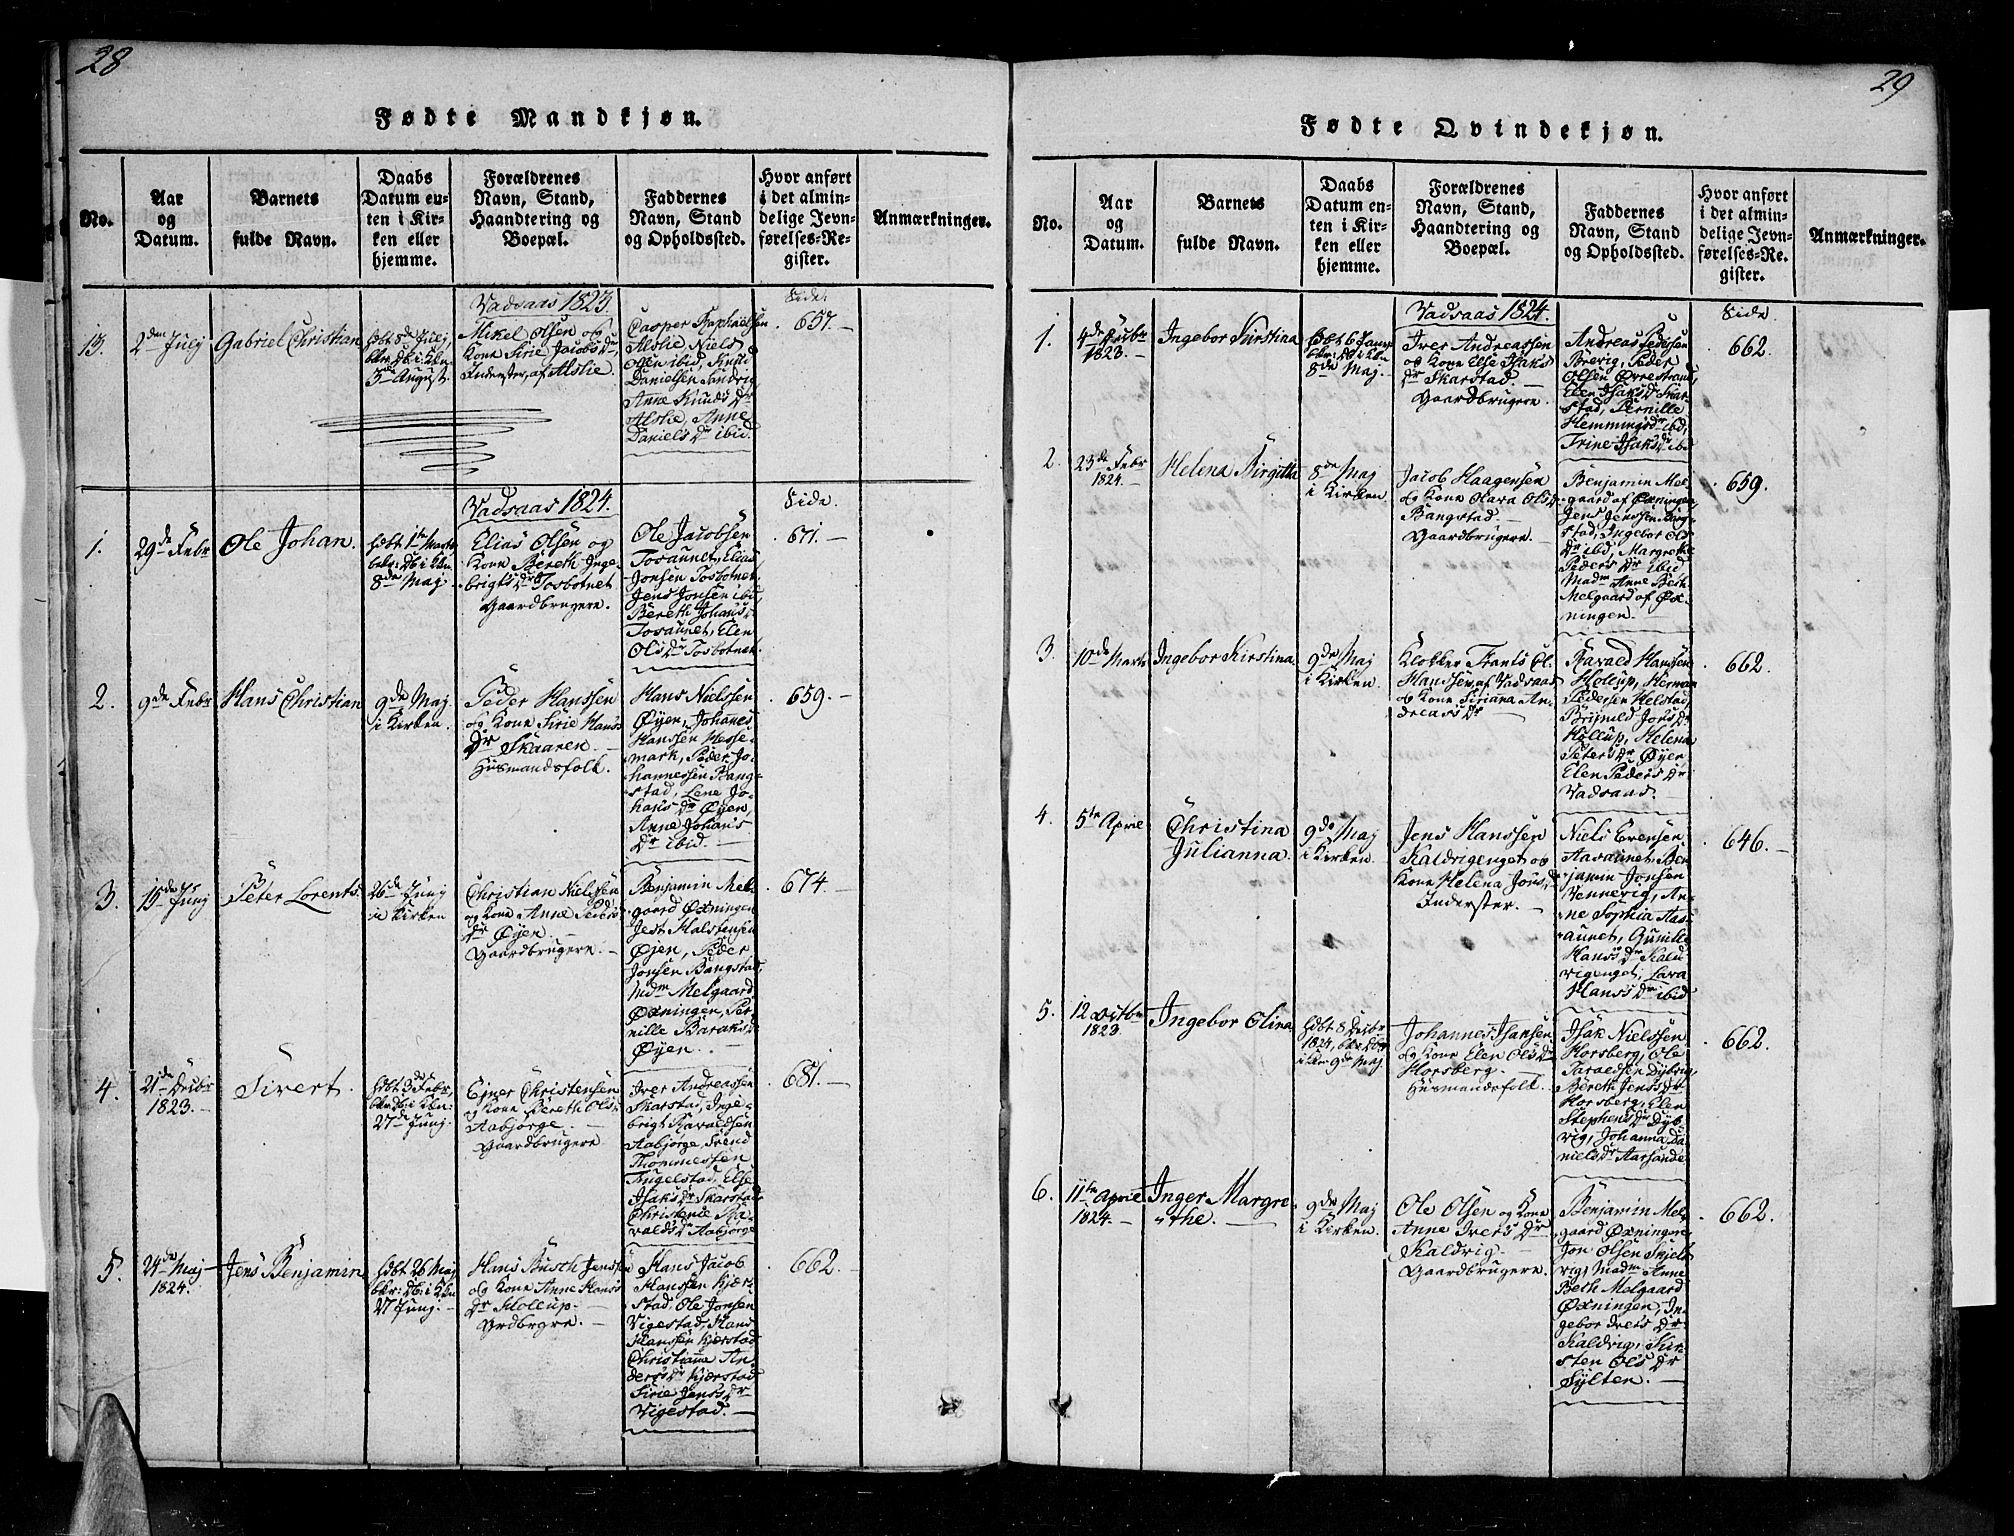 28
Fødte Mandkjøn.
No.
Aar
og
Datum.
Barnets
fulde Navn.
Daabs
Datum en-
ten i Kir-
ken eller
hjemme.
Forældrenes
Navn, Stand,
Haandtering og
Boepæl.
Faddernes
Navn, Stand
og Opholdssted.
Hvor anført
i det almin-
delige Jevn-
førelses-Re-
gister.
Anmærkninger.
Vadsaas 1823.
Side
13.
2den July
Gabriel Christian
hdbt 8de July,
bkr: Db: i Kkn
3die August.
Mikel Olsen og
Kone Sirie Jacobs Dr
Inderster, af Alslie.
Casper Raphaelsen
Alslie, Niels
Olsen ibid, Knud
Danielsen Sandvig
Anne Knuds Dr
Alslie, Anne
Daniels Dr ibid.
657.
Vadsaas 1824.
Side.
1.
29de Febr
Ole Johan.
hdbt 1te Marts
bekr: Db i Kkn.
8de Maj
Elias Olsen og
Kone Bereth Inge-
brigts Dr Tosbotnet
Gaardbrugere.
Ole Jacobsen
Tosaunet, Elias
Jonsen Tosbotnet,
Jens Jonsen ibid,
Bereth Johans Dr
Tosaunet, Elen
Ols Dr Tosbotnet.
671.
2.
9de Febr
Hans Christian
9de Maj
i Kirken.
Peder Hanssen
og Kone Sirie Hans
Dr Skaaren.
Huusmandsfolk.
Hans Nielssen
Øyen, Johannes
Hanssen Hesse-
mark, Peder Jo-
hannessen Bang-
stad, Lene Jo-
hans Dr Øyen,
Anne Johans
Dr ibid.
659.
3.
15de Juny
Peter Lorents.
26de Juny
i Kirken
Christian Nielssen
og Kone Anne Peders
Dr Øyen.
Gaardbrugere.
Benjamin Mel-
gaard Øxningen
Jest Halstensen
Øyen, Peder
Jonsen Bangstad,
Mdm Melgaard
Øxningen, Per-
nille Baraks Dr
Øyen.
674.
4.
21de Decbr
1823.
Sivert.
hdbt 3de Febr,
bkr: Db: i Kkn:
27de Juny.
Ejner Christensen
og Kone Bereth Ols Dr
Aabjørge.
Gaardbrugere
Iver Andreassen
Skarstad, Inge-
brigt Ravaldsen
Aabjørge, Svend
Thommessen
Tingelstad, Else
Isaks Dr Skarstad
Christence Ra-
valds Dr Aabjørge
681.
5.
24de Maj
1824.
Jens Benjamin
hdbt 26 Maj
bkr: Db: i Kkn
27 Juny.
Hans Busch Jenssen
og Kone Anne Hans
Dr Hollup.
Grdbrgre.
Hans Jacob
Hanssen Kjær-
stad, Ole Jonsen
Vigestad, Hans
Hanssen Kjærstad
Christianne An-
ders Dr Kjærstad
Sirie Jens Dr
Vigestad.
662.
29
Fødte Qvindekjøn.
No.
Aar
og
Datum.
Barnets
fulde Navn.
Daabs
Datum en-
ten i Kir-
ken eller
hjemme.
Forældrenes
Navn, Stand,
Haandtering og
Boepæl.
Faddernes
Navn, Stand
og Opholdssted.
Hvor anført
i det almin-
delige Jevn-
førelses-Re-
gister.
Anmærkninger.
Vadsaas 1824.
Side.
1.
4de Decbr
1823.
Ingebor Kirstina
hdbt 6
bkr: Db i Kkn
8de Maj.
Iver Andreassen
og Kone Else Isaks
Dr Skarstad.
Gaardbrugere.
Andreas Pedersen
Brevig, Peder
Olsen Øvrestrand,
Elen Isaks Dr Skar-
stad, Pernille
Hemmings Dr ibid,
Trine Isaks Dr ibid
662.
2.
23de Febr
1824.
Helena Birgitta
8de Maj
i Kirken
Jacob Haagensen
og Kone Olava Ols Dr
Bangstad.
Gaardbrugere.
Benjamin Mel-
gaard af Øxningen
Jens Jenssen Bang-
stad, Ingebor Ols
Dr ibid, Margrethe
Peders Dr ibid
Madm Anne Beth
Melgaard af Øx-
ningen.
659.
3.
10de Marts
Ingebor Kirstina.
9de Maj
i Kirken.
Klokker Frants Ol.
Hanssen af Vadsaas
og Kone Siriana An-
dreas Dr
Ravald Hanssen
Hollup, Herman
Pedersen Helstad,
Brynild Jons Dr
Hollup, Helena
Peters Dr Øyen
Elen Peders Dr
Vadsaas.
662.
4.
5te April
Christina
Julianna.
9de Maj
i Kirken.
Jens Hanssen
Kaldvigenget og
Kone Helena Jons Dr
Inderster.
Niels Evensen
Aasaunet, Ben-
jamin Jonsen
Vennevig, An-
ne Sophia Aas-
aunet, Gunille
Hans Dr Kald-
vigenget, Lava
Hans Dr ibid
646.
5.
12 Octbr
1823.
Ingebor Olina
hdbt 8 Decbr
1824, bkr Db
i Kkn 9de Maj
Johannes Isaksen
og Kone Elen Ols Dr
Horsberg.
Huusmandsfolk.
Isak Nielssen
Horsberg, Ole
Saraelsen Dybvig,
Bereth Jens Dr
Horsberg, Elen
Stephens Dr Dyb-
vig, Johanna Da-
niels Dr Aarsande
662.
6.
11te April
1824.
Inger Margre
the.
9de Maj
i Kirken.
Ole Olsen og Kone
Anne Ivers Dr
Kaldvig.
Gaardbrugere.
Benjamin Mel-
gaard Øxningen
Jon Olsen Skjel-
vig, Madm Anne
Beth Melgaard
Øxningen, In-
gebor Ivers Dr
Kaldvig, Kir-
sten Ols Dr
Sylten.
662.